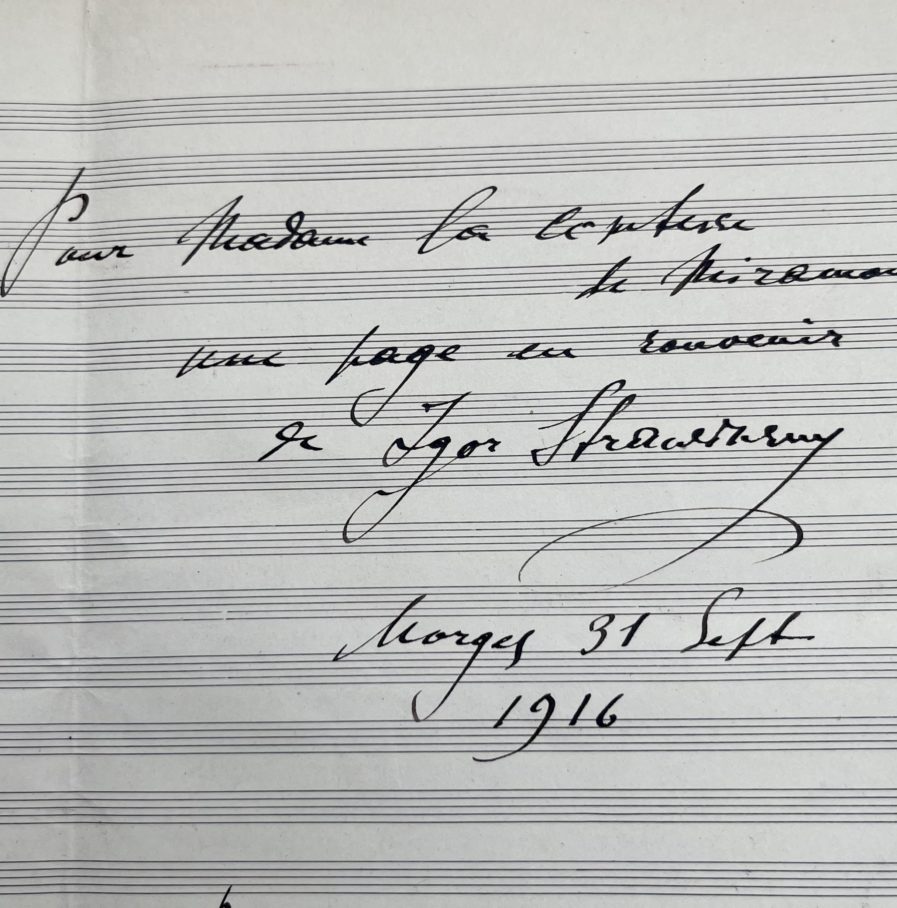 Pour Madame la Comptesse
de Miramon
une page en souvenir
de Igor Strawinsky
Morges 31 Sept
1916